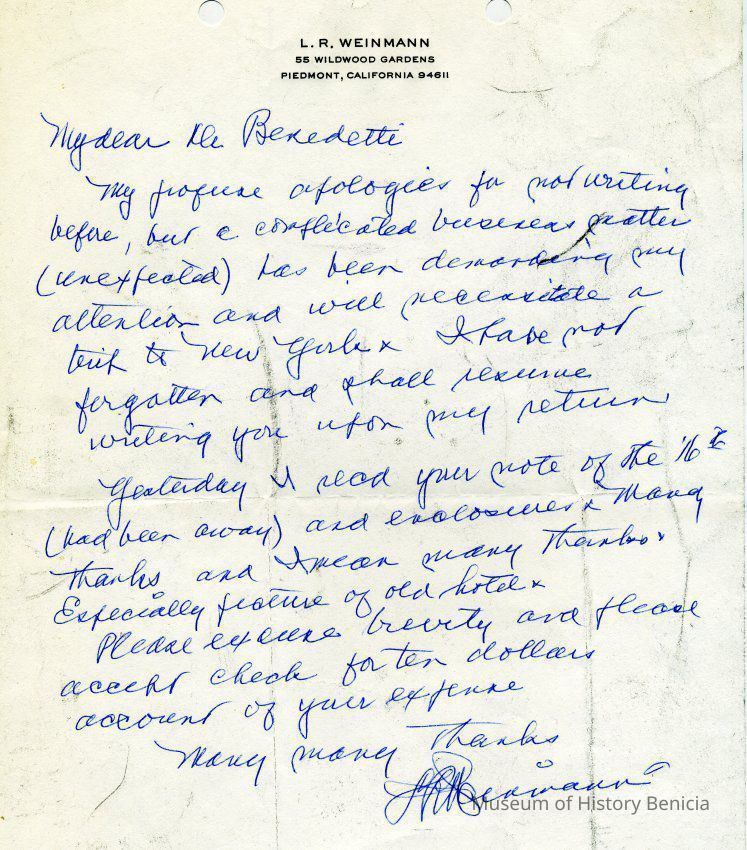 L. R. WEINMANN
55 WILDWOOD GARDENS
PIEDMONT, CALIFORNIA 94611
My dear Mr. Benedetti
My profuse apologies for not writing
before, but a complicated business matter
(unexpected) has been demanding my
attention and will necessitate a
trip to New York x I have not
forgotten and shall resume
writing you upon my return
Yesterday I read your note of the 16th
(had been away) and enclosures x Many
thanks and I mean many thanks x
Especially picture of old hotel x
Please excuse brevity and please
accept check for ten dollars
account of your expense
Many many thanks
LRWeinmann
Museum of History Benicia